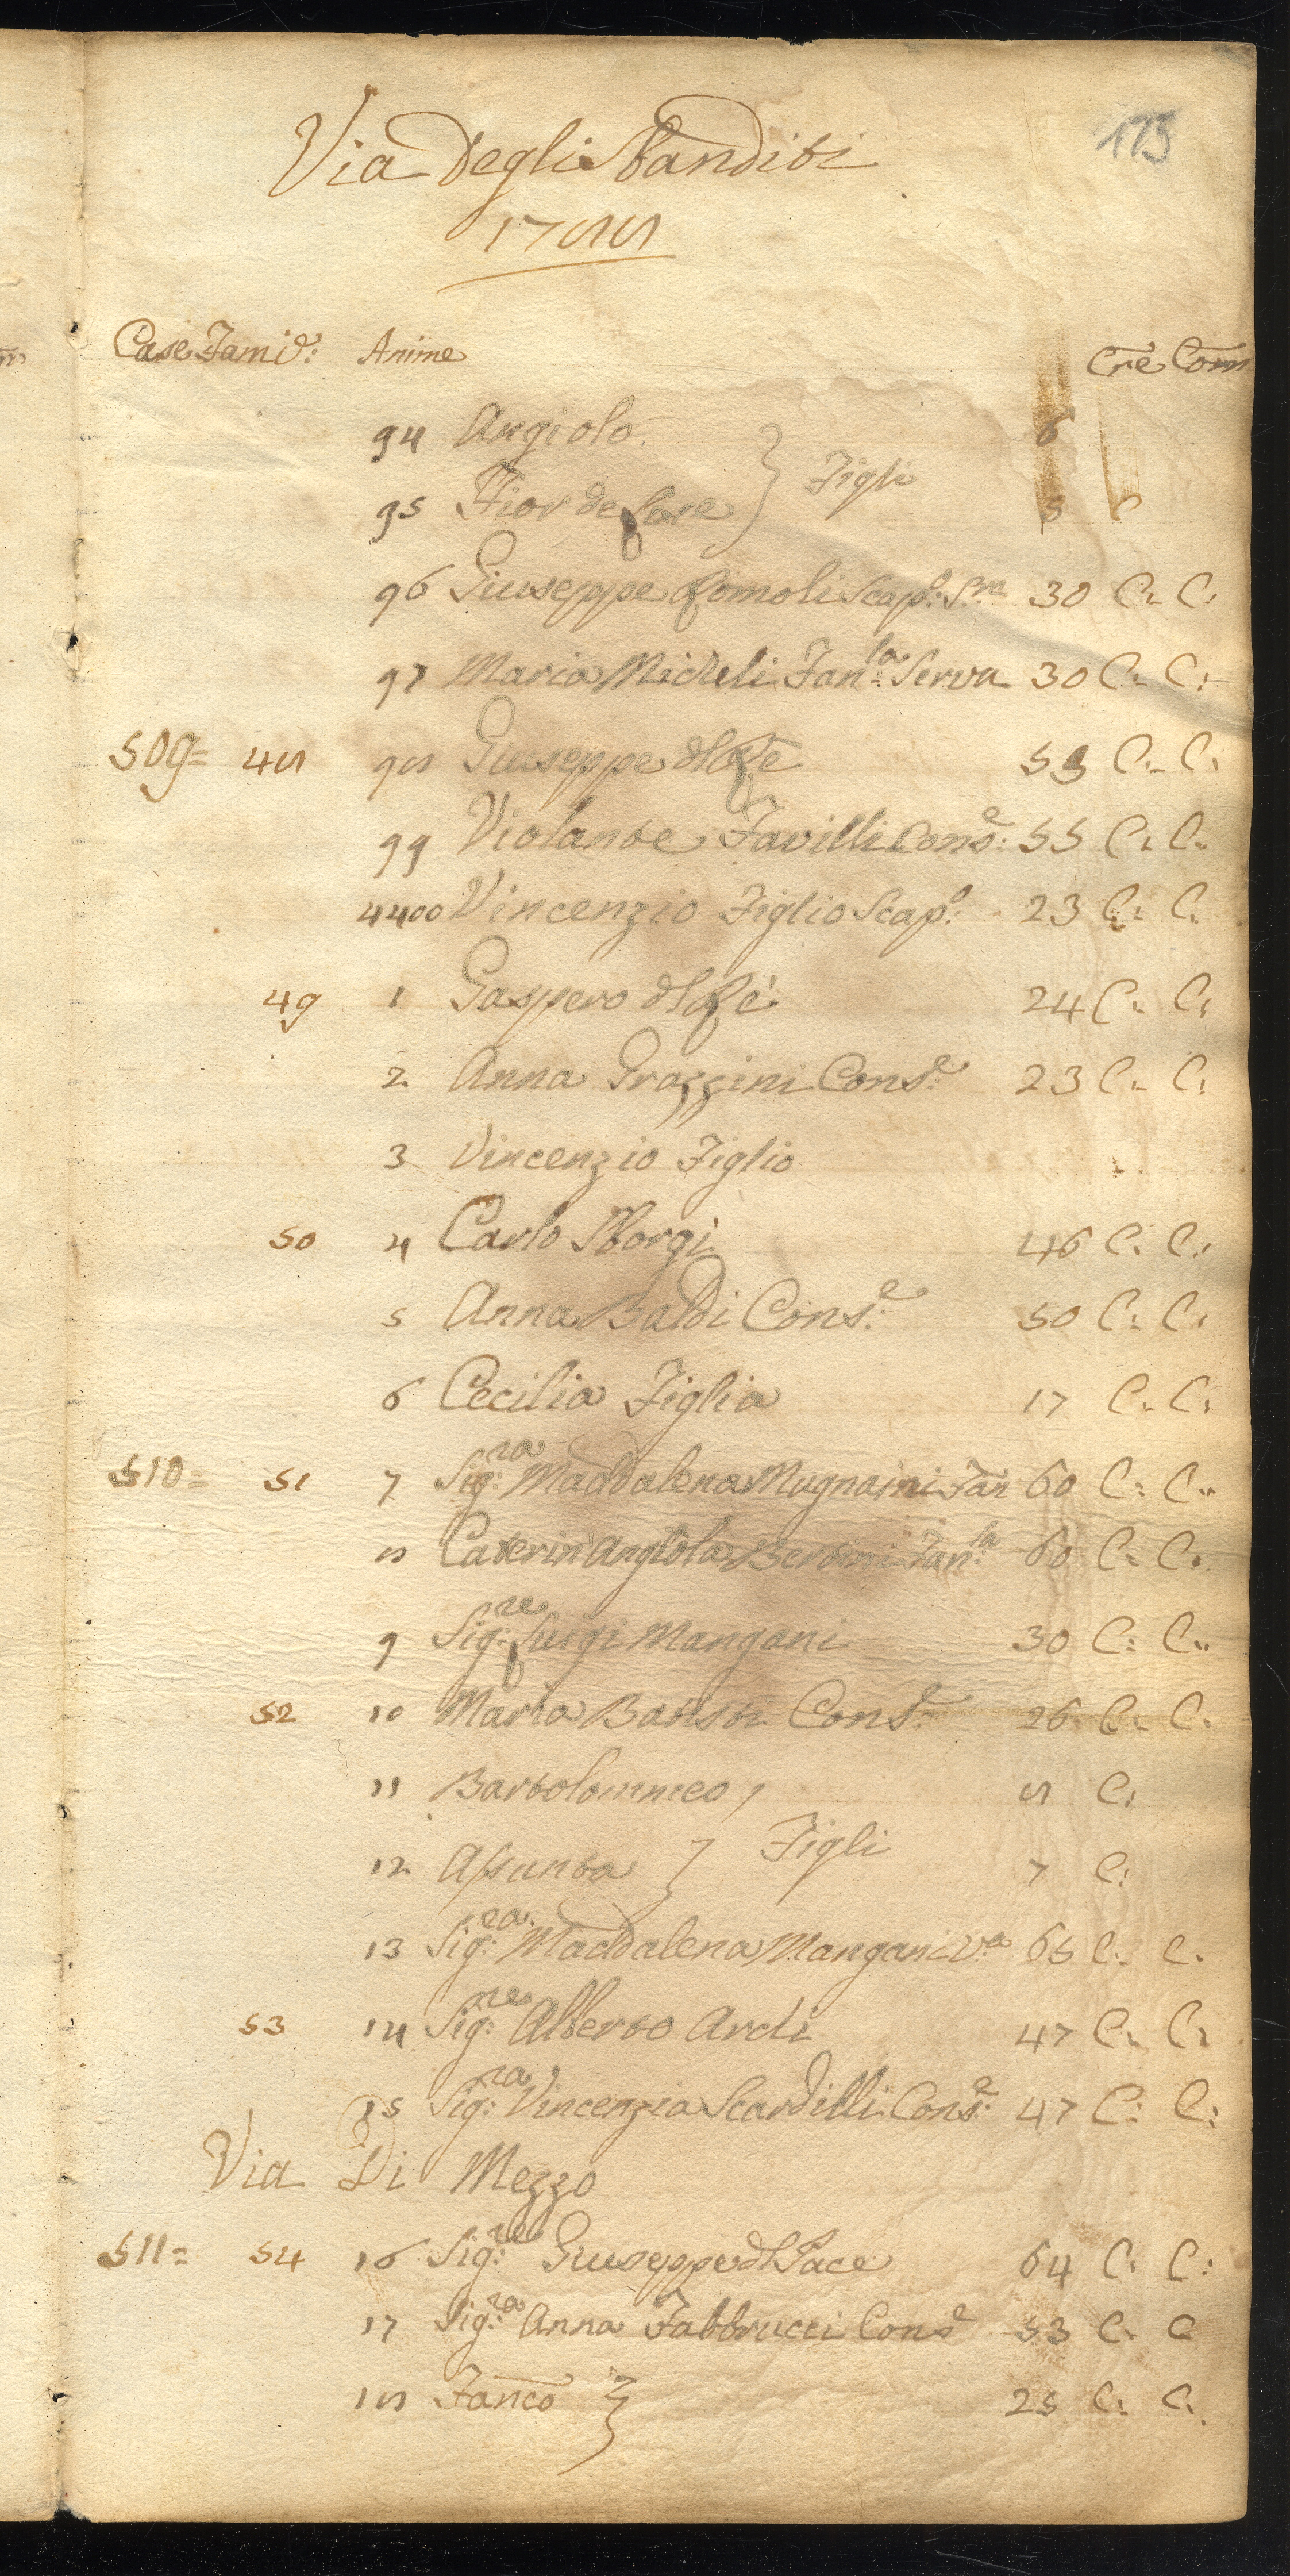 173
Via Degli Sbanditi
1788
Case Famig: Anime Cre Com
94 Angiolo 6
95 Fior de Lore } Figli 8 C
96 Giuseppe Romoli Scap.o S.re 30 C. C:
97 Maria Micheli Fan:la Serva 30 C. C:
509= 48 98 Giuseppe del Rè 53 C. C:
99 Violante Favilli Cons:e 55 C. C.
4400 Vincenzio Figlio Scap:o 23 C: C.
49 1 Gaspero del Rè 24 C. C:
2. Anna Grazzini Cons:e 23 C. C:
3 Vincenzio Figlio
50 4 Carlo Sborgi 46 C. C:
5 Anna Baldi Cons:e 50 C: C:
6 Cecilia Figlia 17 C. C:
510= 51 7 Sig:ra Maddalena Mugnaini Fan 60 C: C..
8 Caterin'Angiola Bertini Fan:la 60 C. C:
9 Sig:re Luigi Mangani 30 C: C..
52 10 Maria Cons:e 26 C. C.
11 Bartolommeo 8 C:
12 Assunta } Figli 7 C:
13 Sig:ra Maddalena Mangani V.a 65 C. C.
53 14 Sig:re Alberto Ardi 47 C. C:
15 Sig:ra Vincenzia Scardilli Cons:e 47 C: C:
Via Di Mezzo
511= 54 16 Sig:re Giuseppe del Pace 64 C. C:
17 Sig:ra Anna Fabbrucci Cons:e 53 C. C
18 Fanco } 25 C: C.